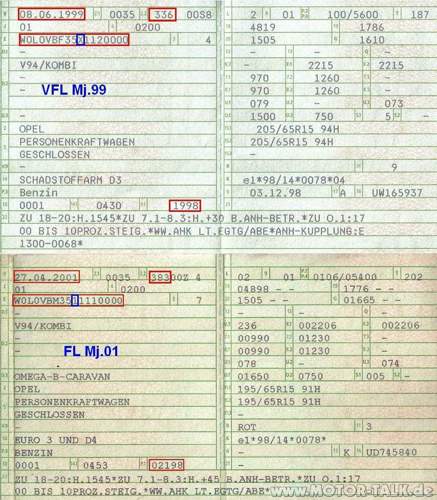 08.06.1999 0035 336 00S8
01 0200
4
V94/KOMBI
VFL Mj.99
OPEL
PERSONENKRAFTWAGEN
GESCHLOSSEN
SCHADSTOFFARM D3
Benzin
0001 0430 1998
2 01 100/5600 187
4819 1786
1505 1610
2215 2215
970 1260
970 1260
079 073
1500 750 5
205/65R15 94H
205/65R15 94H
9
e1*98/14*0078*04
03.12.98 A UW165937
ZU 18-20:H.1545*ZU 7.1-8.3:H.+30 B.ANH-BETR.*ZU O.1:17
00 BIS 10PROZ.STEIG.*WW.AHK LT.EGTG/ABE*ANH-KUPPLUNG:E
1300-0068*
27.04.2001 0035 38300Z 4
01 0200
7
V94/KOMBI
FL Mj.01
OMEGA-B-CARAVAN
OPEL
PERSONENKRAFTWAGEN
GESCHLOSSEN
EURO 3 UND D4
BENZIN
0001 0453 02198
02 01 0106/05400 202
04898 1776
1505 01665
236 002206 002206
00990 01230
00990 01230
078 074
01650 0750 005
195/65R15 91H
195/65R15 91H
ROT 3
e1*98/14*0078*
K UD745840
ZU 18-20:H.1525*ZU 7.1-8.3:H+45 B.ANH-BETR.*ZU O.1:17
00 BIS 10PROZ.STEIG.*WW.AHK LT.EGTG/ABE*
www.MOTOR-TALK.de